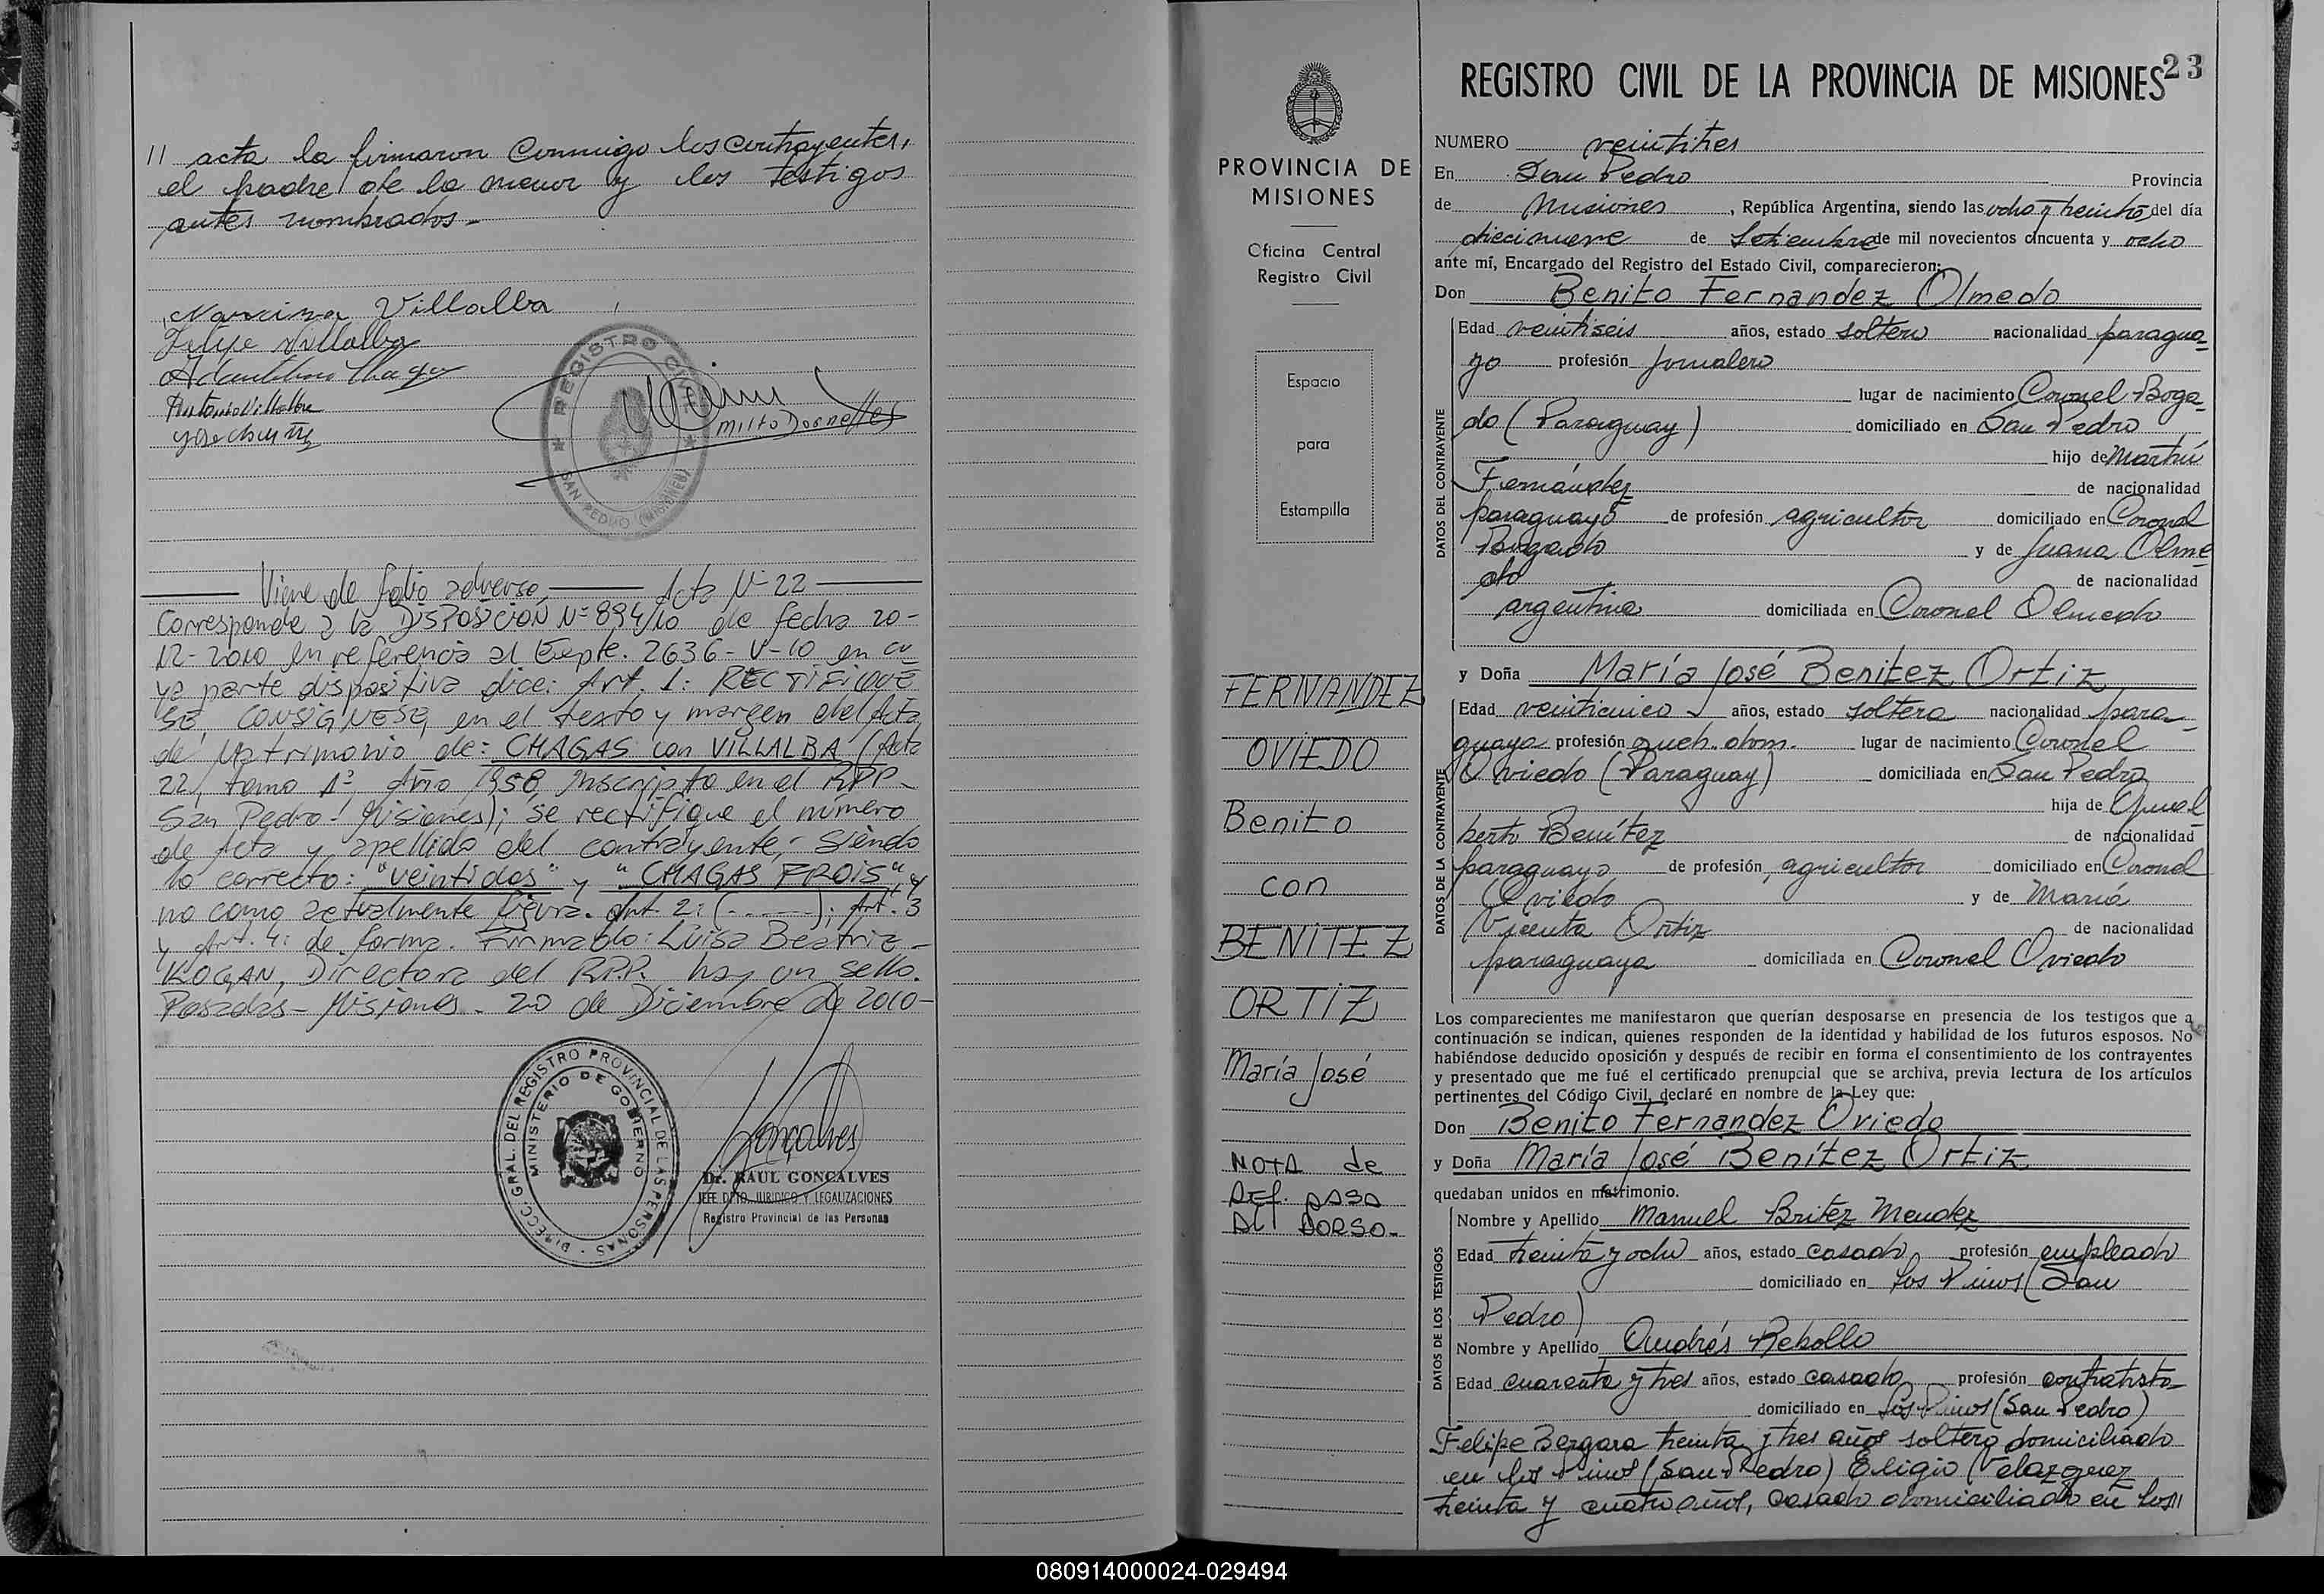 11 acta la firmaron conmigo los contrayentes,
el padre de la menor y los testigos
antes nombrados.-
Narciza Villalba
Felipe Villalba
Antonio Villalba
REGISTRO CIVIL
SAN PEDRO (MISIONES)
Milto Dornelles
Viene de folio adverso, Acta Nº 22
Corresponde a la DISPOSICION Nº 894/10 de fecha 20-
12-2010 en referencia al Expte. 2636-V-10 en cu
ya parte dispositiva dice: Art. 1: RECTIFIQUE
SE, CONSIGNESE, en el texto y margen del Acta
de Matrimonio de: CHAGAS con VILLALBA (Acta
22, tomo 1º, Año 1958, inscripto en el RPP-
San Pedro-Misiones); se rectifique el número
de Acta y apellido del contrayente, siendo
lo correcto: "veintidos" y "CHAGAS FROIS" y
no como actualmente figura. Art. 2: (.......); Art. 3
y Art. 4: de forma. Firmado: Luisa Beatriz-
KOGAN, Directora del R.P.P. hay un sello.
Posadas-Misiones. 20 de Diciembre de 2010-
DIRECC. GRAL. DEL REGISTRO PROVINCIAL DE LAS PERSONAS
MINISTERIO DE GOBIERNO
Goncalves
Dr. RAUL GONCALVES
JEFE DPTO. JURIDICO Y LEGALIZACIONES
Registro Provincial de las Personas
PROVINCIA DE
MISIONES
Oficina Central
Registro Civil
Espacio
para
Estampilla
FERNANDEZ
OVIEDO
Benito
con
BENITEZ
ORTIZ
María José
NOTA de
REF. PASA
AL DORSO-
REGISTRO CIVIL DE LA PROVINCIA DE MISIONES 23
NUMERO veintitres
En San Pedro Provincia
de Misiones, República Argentina, siendo las ocho y treinta del día
diecinueve de Setiembre de mil novecientos cincuenta y ocho
ante mí, Encargado del Registro del Estado Civil, comparecieron:
Don Benito Fernandez Olmedo
DATOS DEL CONTRAYENTE
Edad veintiseis años, estado soltero nacionalidad paragua-
yo profesión jornalero
lugar de nacimiento Coronel Boga-
do (Paraguay) domiciliado en San Pedro
hijo de Martín
Fernández de nacionalidad
paraguayo de profesión agricultor domiciliado en Coronel
Bogado y de Juana Olme
do de nacionalidad
argentina domiciliada en Coronel Olmedo
y Doña María José Benitez Ortiz
DATOS DE LA CONTRAYENTE
Edad veinticinco años, estado soltera nacionalidad para-
guaya profesión queh. dom. lugar de nacimiento Coronel
Oviedo (Paraguay) domiciliada en San Pedro
hija de Gumel
berto Benítez de nacionalidad
paraguayo de profesión agricultor domiciliado en Coronel
Oviedo y de María
Vicenta Ortiz de nacionalidad
paraguaya domiciliada en Coronel Oviedo
Los comparecientes me manifestaron que querían desposarse en presencia de los testigos que a
continuación se indican, quienes responden de la identidad y habilidad de los futuros esposos. No
habiéndose deducido oposición y después de recibir en forma el consentimiento de los contrayentes
y presentado que me fué el certificado prenupcial que se archiva, previa lectura de los artículos
pertinentes del Código Civil, declaré en nombre de la Ley que:
Don Benito Fernandez Oviedo
y Doña María José Benítez Ortiz
quedaban unidos en matrimonio.
DATOS DE LOS TESTIGOS
Nombre y Apellido Manuel Britez Mendez
Edad treinta y ocho años, estado casado, profesión empleado
domiciliado en Los Pinos (San
Pedro)
Nombre y Apellido Andrés Rebollo
Edad cuarenta y tres años, estado casado profesión contratista
domiciliado en Los Pinos (San Pedro)
Felipe Bergara treinta y tres años soltero domiciliado
en los Pinos (San Pedro) Eligio Velazquez
treinta y cuatro años, casado domiciliado en Los 11
080914000024-029494